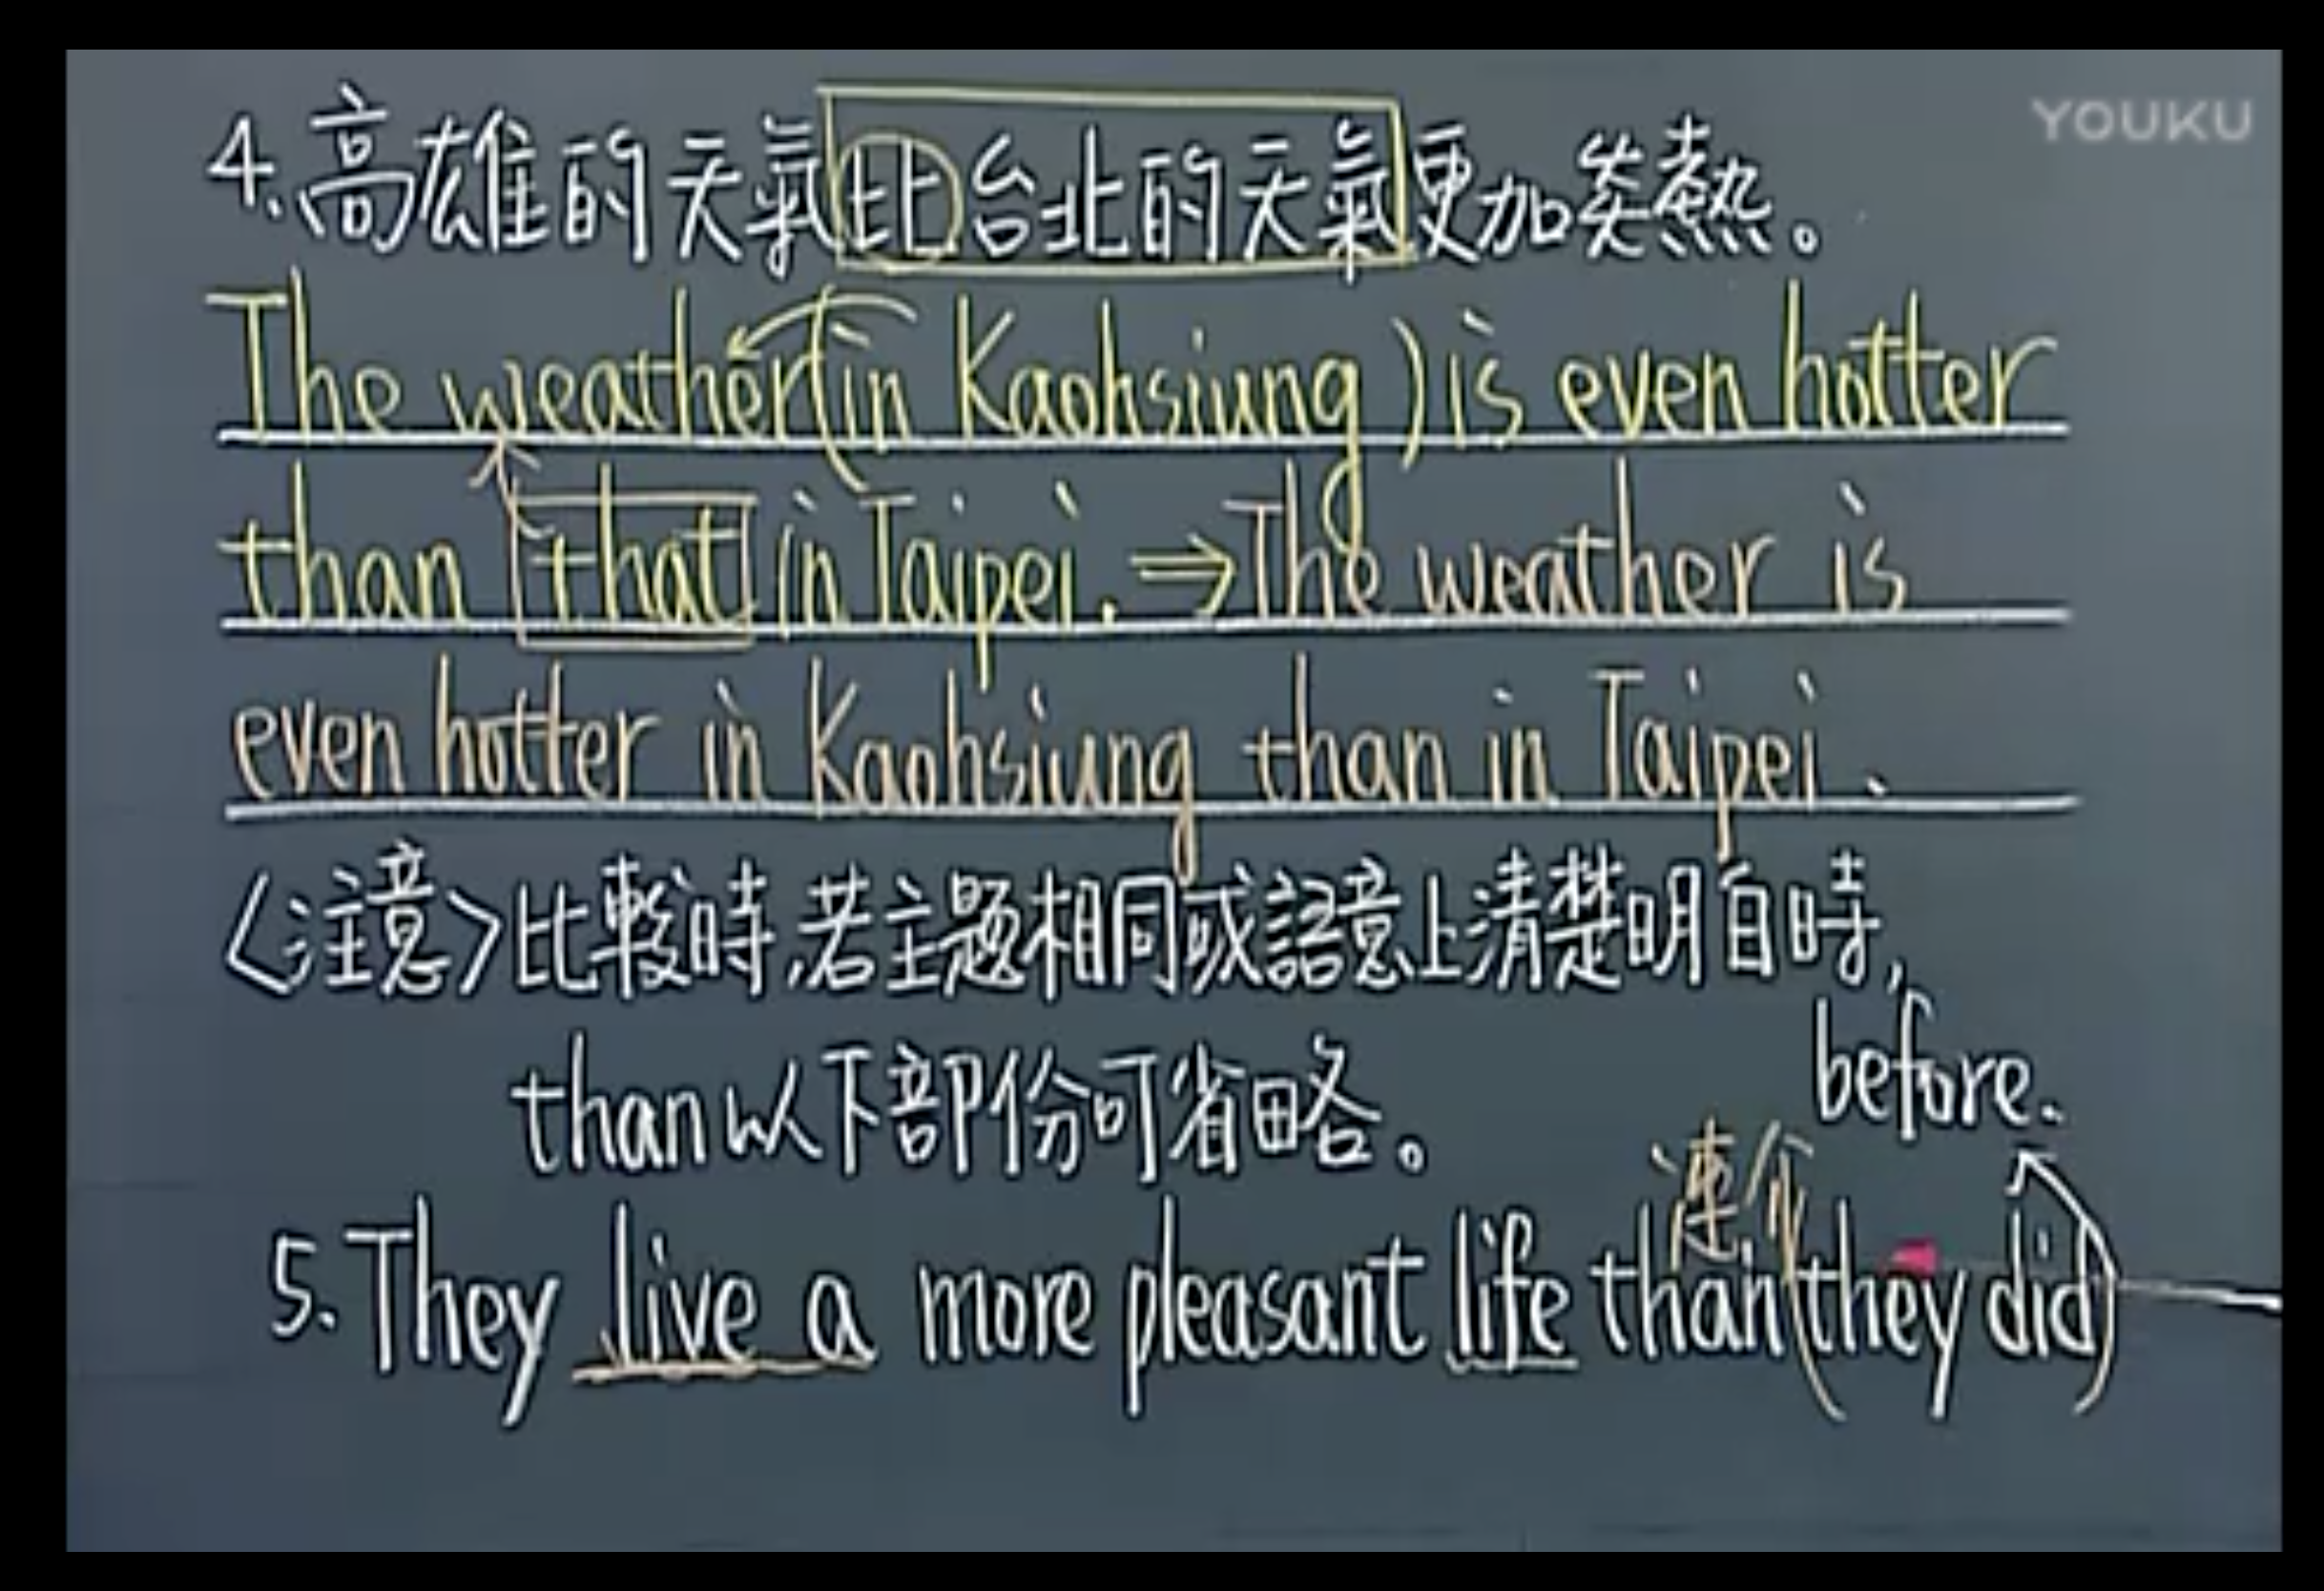 YOUKU
4.高雄的天氣比台北的天氣更加炎熱。
The weather (in Kaohsiung) is even hotter
than that in Taipei. ⇒ The weather is
even hotter in Kaohsiung than in Taipei.
〈注意〉比較時,若主題相同或語意上清楚明白時,
than以下部份可省略。
before.
連介
5. They live a more pleasant life than (they did)